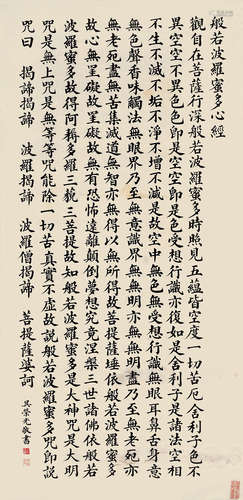 般若波羅蜜多心經
觀自在菩薩行深般若波羅蜜多時照見五蘊皆空度一切苦厄舍利子色不
異空空不異色色即是空空即是色受想行識亦復如是舍利子是諸法空相
不生不滅不垢不淨不增不減是故空中無色無受想行識無眼耳鼻舌身意
無色聲香味觸法無眼界乃至無意識界無無明亦無無明盡乃至無老死亦
無老死盡無苦集滅道無智亦無得以無所得故菩提薩埵依般若波羅蜜多
故心無罣礙無罣礙故無有恐怖遠離顛倒夢想究竟涅槃三世諸佛依般若
波羅蜜多故得阿耨多羅三藐三菩提故知般若波羅蜜多是大神咒是大明
咒是無上咒是無等等咒能除一切苦真實不虛故說般若波羅蜜多咒即說
咒曰 揭諦揭諦 波羅揭諦 波羅僧揭諦 菩提薩婆訶
吳榮光敬書